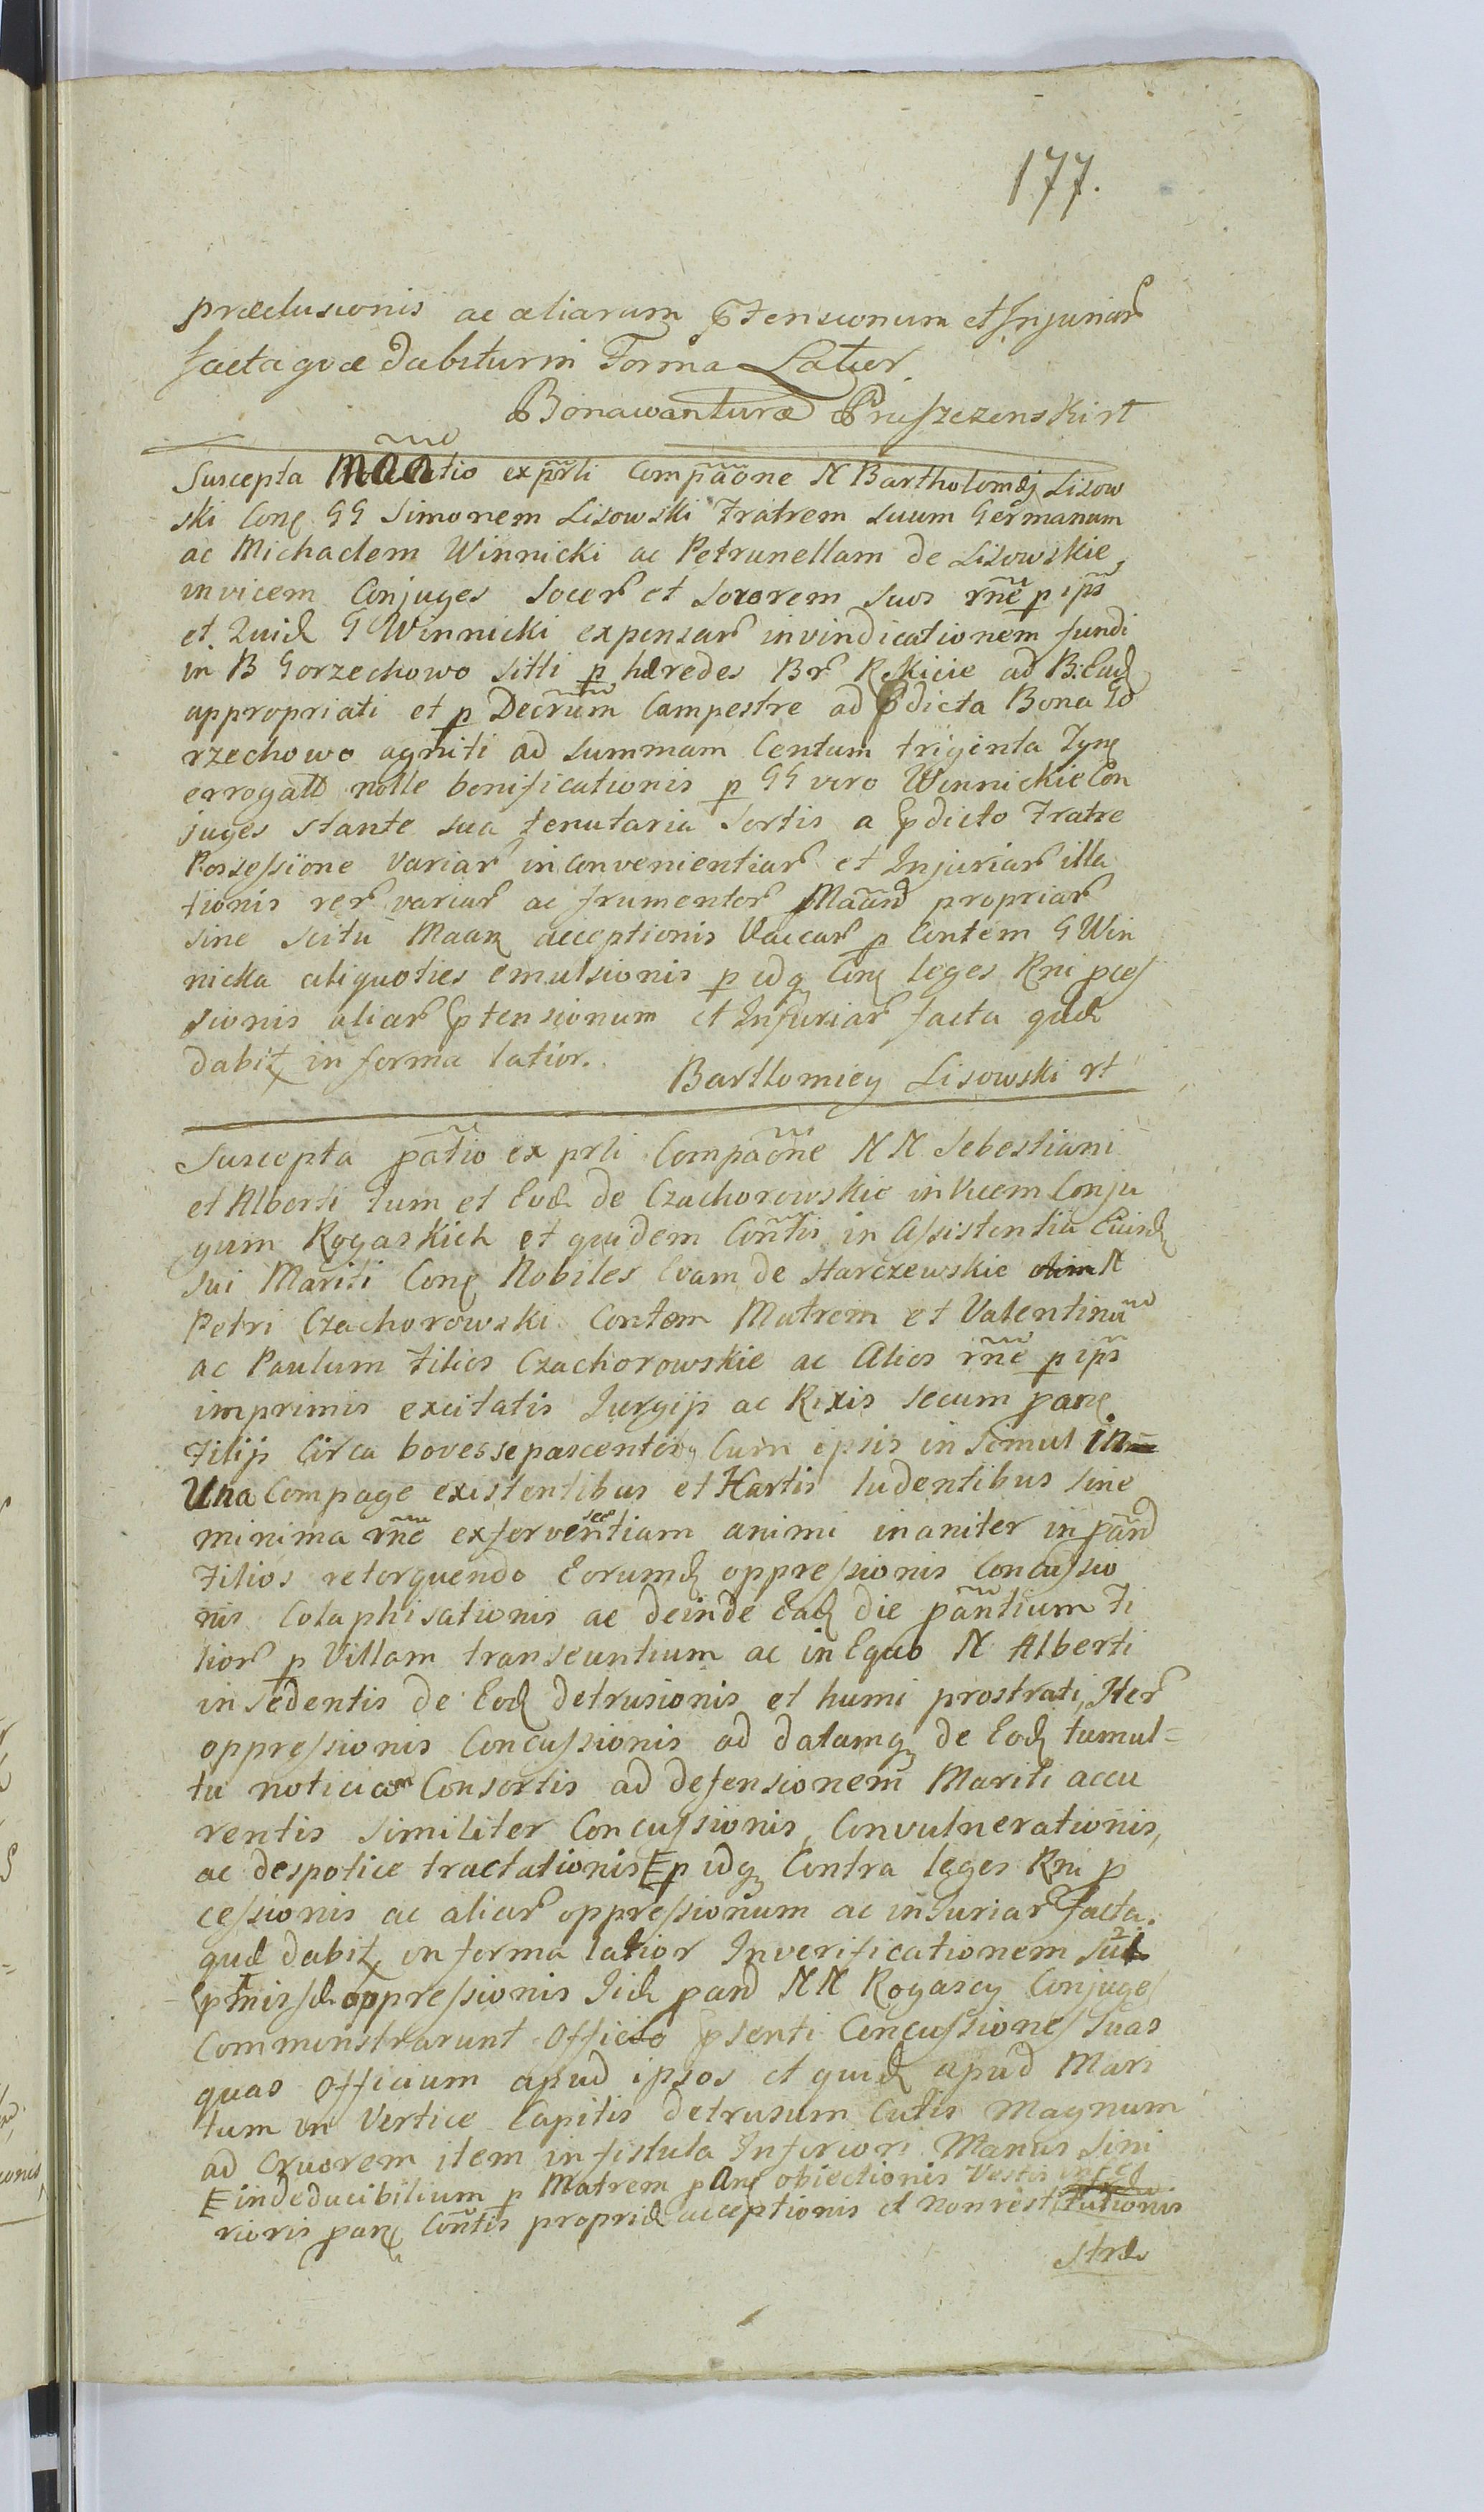 177.
præclusionis ac aliarum ptensionum et Injuriar
facta quæ dabitur in Forma Latior.
Bonawantura Pruszczenski rt
Suscepta Maatio ex prli Compaone N Bartholomæj Lisow
ski Cong GG Simonem Lisowski Fratrem suum Germanum
ac Michaelem Winnicki ac Petrunellam de Lisowskie,
invicem Conjuges Socer et Sororem suos rne p ips
et. Quid G Winnicki expensar invindicationem fundi
in B Gorzechowo Sitti p hæredes Br Rskicie ad B. Ead
appropriati et p Decrum Campestre ad pdicta Bona Go
rzechowo agniti ad summam Centum triginta Tyng
errogatt nolle bonificationis p GG vero Winnickie Con
juges stante sua tenutaria Sortis a pdicto Fratre
Possessione Variar inconvenientiar et Injuriar illa
tionis rer variar ac frumentor Maand propriar
sine scitu Maang acceptionis Vaccar p Contem G Win
nicka aliquoties emulsionis p idq Cong leges Rni pces
sionis aliar ptensionum et Injuriar facta quæ
dabit in forma latior. Bartłomiey Lisowski rt
Suscepta patio ex prli Compaone NN Sebestiani
et Alberti tum et Evæ de Czachorowskie in Vicem Conju
gum Rogaskich et quidem Contis in Assistentia Euisd
sui Mariti Cong Nobiles Evam de Starczewskie olim N
Petri Czachorowski Contem Matrem et Valentinu
ac Paulum Filios Czachorowskie ac Alios rne p ips
imprimis excitatis Jurgijs ac Rixis secum pang
Filijs Circa boves se pascentes Cum ipsis in Simul in
Una Compage existentibus et Hartis ludentibus sine
minima rne exferverscentiam animi inaniter in pand
Filios retorquendo Eorumd oppressionis Concussio
nis Colaphisationis ac deinde Ead die pantium Fi
lior p Villam transeuntium ac in Equo N Alberti
insedentis de Eod detrusionis et humi prostrati, Iter
oppressionis Concussionis ad datamq de Eod tumul=
tu noticiam Consortis ad defensionem Mariti accu
rentis similiter Concussionis, Convulnerationis,
ac despotice tractationis E p idq Contra leges Rni p
cessionis ac aliar oppressionum ac injuriar facta.
quæ dabit in forma latior Inverificationem suæ
pmissæ oppressionis Iid pand NN Rogascy Conjuges
Commonstrarunt Officio psenti Concussiones suas
quas Officium apud ipsos et quid apud Mari
tum in Vertice Capitis detrusum Cutis Magnum
ad Cruorem item in fistula Inferiori Manus Sini
E indeducibilium p Matrem pang obiectionis Vestis
rioris pang Contis propriæ acceptionis et non restitutionis
stræ